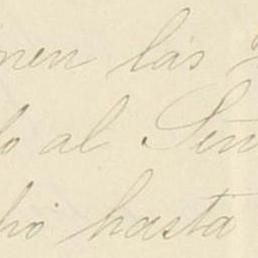 nen las
do al Señ
hó hasta